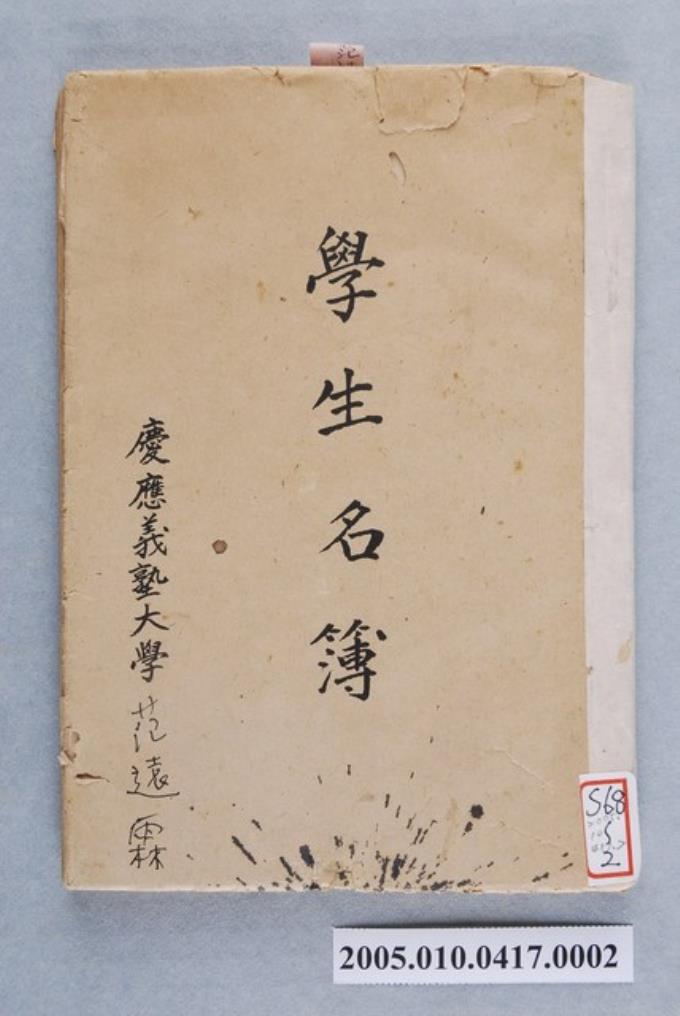 學生名簿
慶應義塾大學 范遠霖
S68
S
2
2005.010.0417.0002